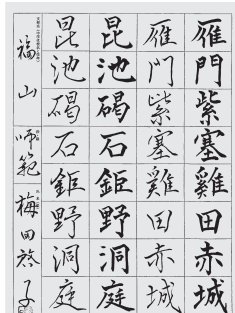 雁門紫塞雞田赤城
雁門紫塞雞田赤城
昆池碣石鉅野洞庭
昆池碣石鉅野洞庭
福山 師範 梅田啓子